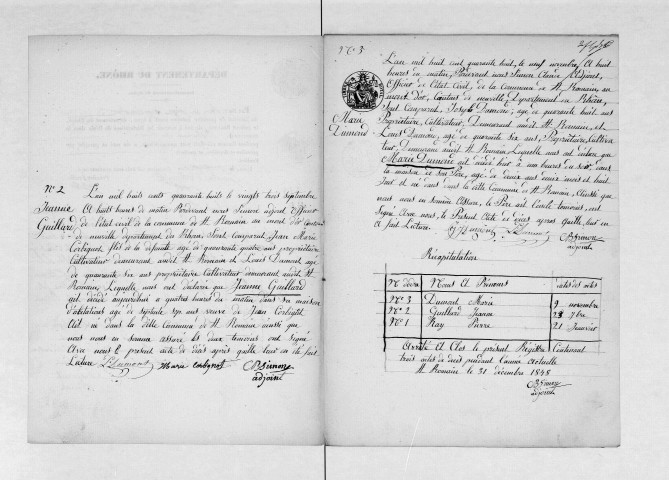 DÉPARTEMENT DU RHÔNE.
N° 2
Jeanne
Guillard
L'an mil huit cents quarante huit le vingt trois septembre
à huit heures du matin Pardevant nous Simon adjoint officier
de l'état civil de la commune de St Romain au mont d'or canton
de neuville département du Rhône, Sont comparus Jean Marie
Corbignot fils de la défunte agé de quarante quatre ans propriétaire
cultivateur demeurant audit St Romain et Louis Dumond agé
de quarante six ans propriétaire cultivateur demeurant audit St
Romain Lesquels nous ont déclaré que Jeanne Guillard
est décédé aujourdhui a quatre heures du matin dans sa maison
d'abitations agé de septante ans veuve de Jean Corbignot
Est né dans la dite Commune de St Romain ainsi que
nous nous en somme assuré les deux témoins ont signé
avec nous le présent acte de décès après quelle leur en ait fait
Lecture
LDumont
Marie Corbignot
BSimon
adjoint
N° 3
Marie
Dumond
L'an mil huit cent quarante huit, le neuf novembre à huit
heures du matin, Pardevant nous Simon Adjoint,
Officier de l'état Civil, de la Commune de St Romain au
mont d'or, Canton de neuville, Département du Rhône,
Sont Comparus Joseph Dumond, agé de quarante huit ans
Propriétaire, Cultivateur, Demeurant audit St Romain, et
Louis Dumond, agé de quarante six ans, Propriétaire, Cultiva
teur, Demeurant audit St Romain Lesquels nous ont déclaré que
Marie Dumond est décédé hier à heures du soir, dans
la maison de son Père, agé de
Juit et né dans la dite Commune de St Romain, ainsi que
nous nous en somme assuré, le Père et l'oncle témoins, ont
Signé Avec nous, le Présent Acte de décès après quelle leur en
a fait Lecture.
JDumond
LDumont
BSimon
adjoint
Récapitulation
N° d'ordre Noms et Prénoms dates des actes
N° 3 Dumont Marie 9 novembre
N° 2 Guillard Jeanne 23 7bre
N° 1 Ray Pierre 21 Janvier
Arrêté et Clos le présent Régistre Contenant
trois actes de décès pendant l'année actuelle
St Romain le 31 décembre 1848
BSimon
adjoint